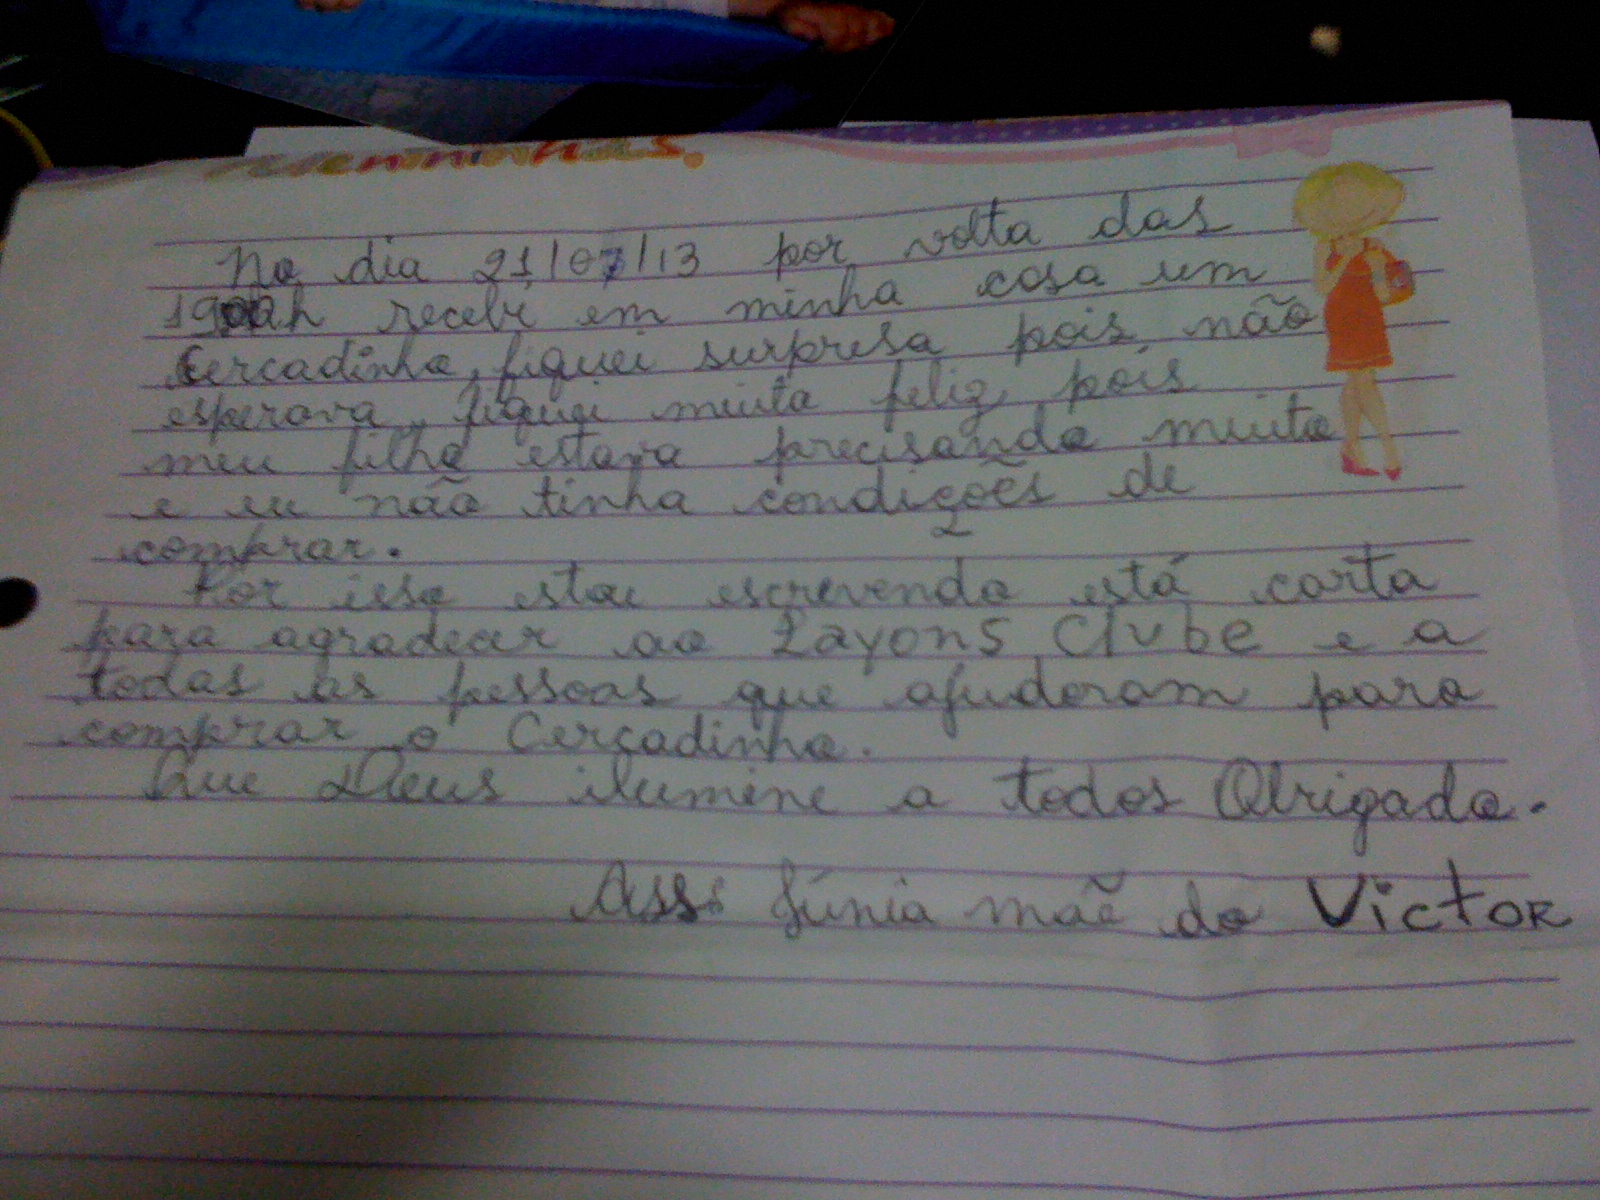 meninas.
No dia 21/07/13 por volta das
1900h recebi em minha casa um
Cercadinho, fiquei surpresa pois não
esperava, fiquei muito feliz, pois
meu filho estava precisando muito
e eu não tinha condições de
comprar.
Por isso estou escrevendo está carta
para agradecer ao Layons Clube e a
todas as pessoas que ajuderam para
comprar o Cercadinho.
Que Deus ilumine a todos Obrigada.
Ass: Júnia mãe do Victor